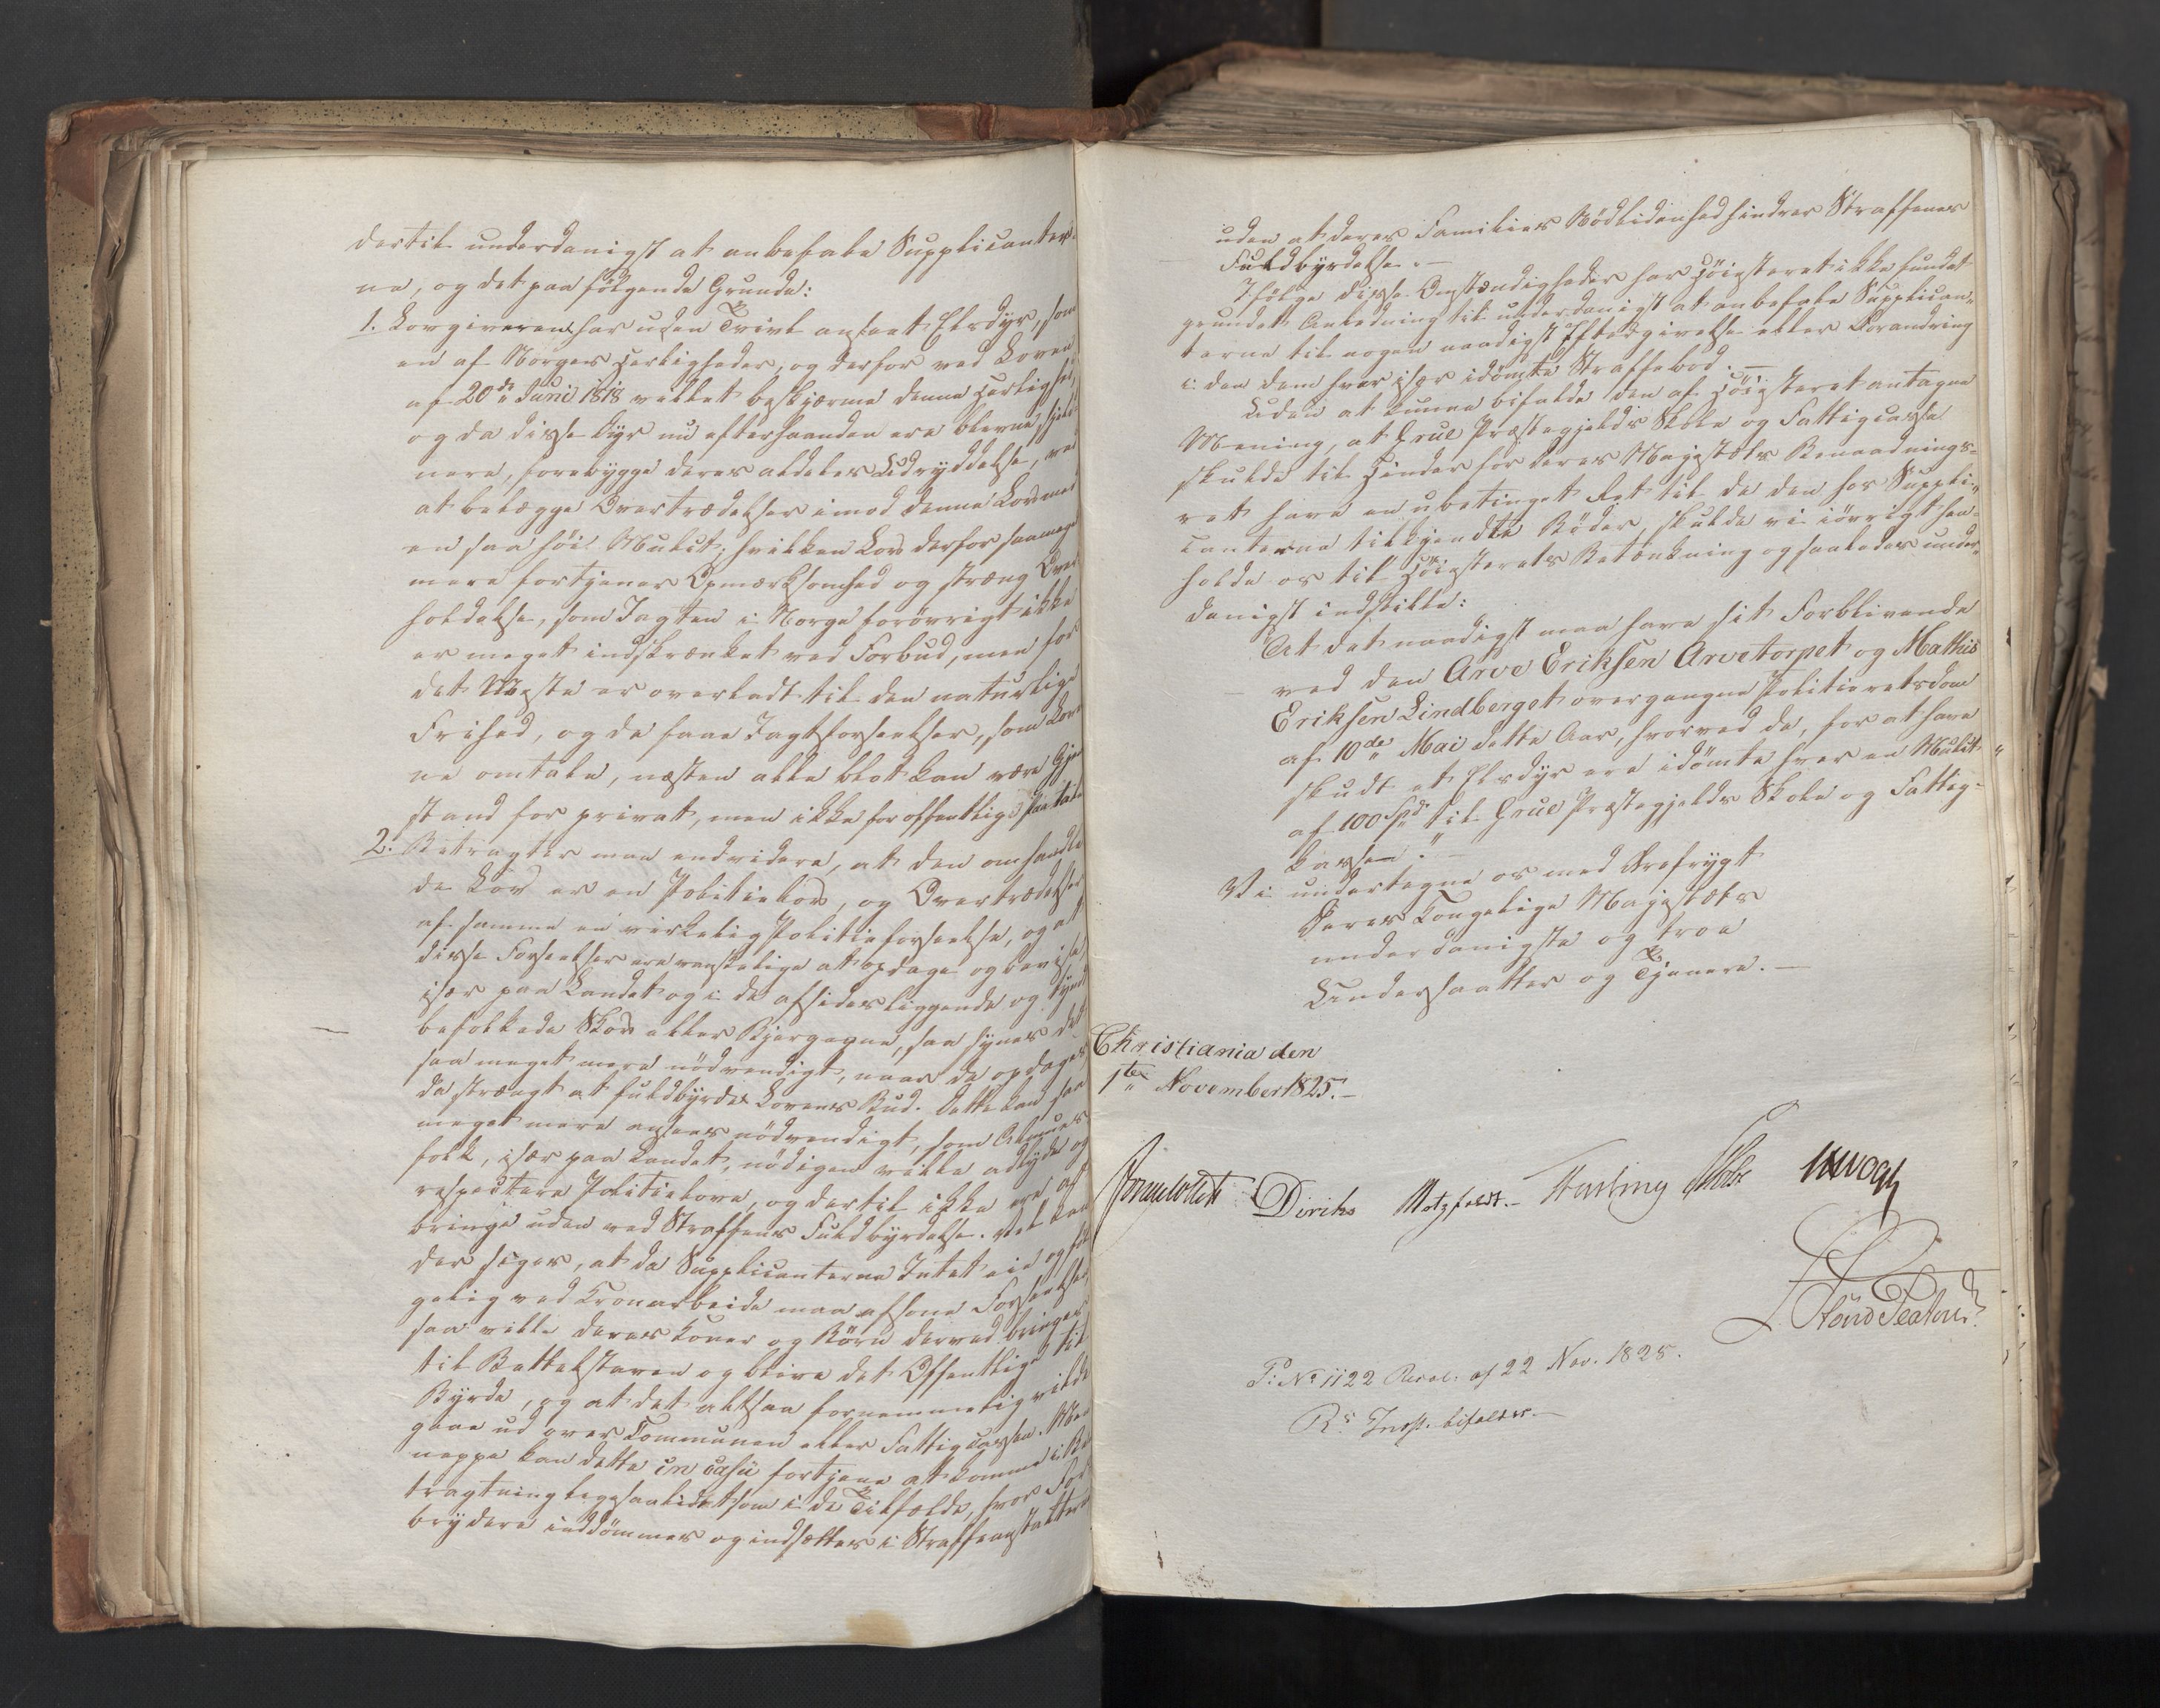 dertil underdanigst at anbefale Supplicanter-
ne, og det paa følgende Grunde:
1. Lovgiveren har uden Tvivl anseet Elsdyr, som
en af Norges Herligheder, og derfor ved Loven
af 20de Juni 1818 villet beskjærme denne Herlighed,
og da disse Dyr nu efterhaanden ere blevne sjeld-
nere, forebygge deres aldeles Udryddelse, ved
at belægge Overtrædelser imod denne Lov med
en saa høi Mulct; hvilken Lov derfor saameget
mere fortjener Opmærksomhed og streng Over-
holdelse, som Jagten i Norge forøvrigt ikke
er meget indskrænket ved Forbud, men for
det Meste er overladt til den naturlige
Frihed, og de faae Jagtforseelser, som Love-
ne omtale, næsten alle blot kan være Gjen-
stand for privat, men ikke for offentlig Paatale
2. Betragter man endvidere, at den omhandle-
de Lov er en Politielov, og Overtrædelser
af samme en virkelig Politieforseelse, og at
disse Forseelser ere vanskelige at opdage og bevise,
især paa Landet og i de afsidesliggende og tyndt
befolkede Skov eller Bjergegne, saa synes det
saa meget mere nødvendigt, naar de opdages
da strængt at fuldbyrde Lovens Bud. Dette kan saa
meget mere ansees nødvendigt, som Almues
folk, især paa Landet, nødigen ville adlyde og
respectere Politielove, og dertil ikke ere at
bringe uden ved Straffens Fuldbyrdelse. Vel kan
der siges, at da Supplicanterne Intet eie og føl-
gelig ved Tvonarbeide maa afsone Forseelsen,
saa ville deres Koner og Børn derved bringes
til Bettelstaven og blive det Offentlige til
Byrde, og at det altsaa fornemmelig vilde
gaae ud over Communen eller Fattigcassen. Men
neppe kan dette in casu fortjene at komme i Be-
tragtning ligesaalidet som i de Tilfælde, hvor For-
brydere inddømmes og indsættes i Straffeanstalterne
uden at deres Familiers Nødlidenhed hindrer Straffens
Fuldbyrdelse. —
Ifølge disse Omstændigheder har Høiesteret ikke fundet
grundet Anledning til underdanigst at anbefale Supplican-
terne til nogen naadigst Eftergivelse eller Forandring
i den dem hver især idømte Straffebod. —
Uden at kunne bifalde den af Høiesteret antagne
Mening, at Grue Præstegjelds Skole og Fattigcasse
skulde til Hinder for Deres Majestæts Benaadnings-
ret have en ubetinget Ret til de den hos Suppli-
canterne tilkjendte Bøder, skulde vi iøvrigt hen-
holde os til Høiesterets Betænkning og saaledes under-
danigst indstille:
At det naadigst maa have sit Forblivende
ved den Arve Eriksen Arvetorpet og Mathis
Eriksen Lindberget overgangne Politieretsdom
af 10de Mai dette Aar, hvorved de, for at have
skudt et Elsdyr ere idømte hver en Mulct
af 100 Spd til Grue Præstegjelds Skole og Fattig-
kasse. —
Vi undertegne os med Ærefrygt
Deres Kongelige Majestæts
underdanigste og troe
Undersaatter og Tjenere. —
Christiania den
1ste November 1825. —
Jonas Collett Diriks Motzfeldt. — Fasting Holst JHVogt
P: No 1122 Resol. af 22 Nov. 1825.
Rs Indst. bifaldes. —